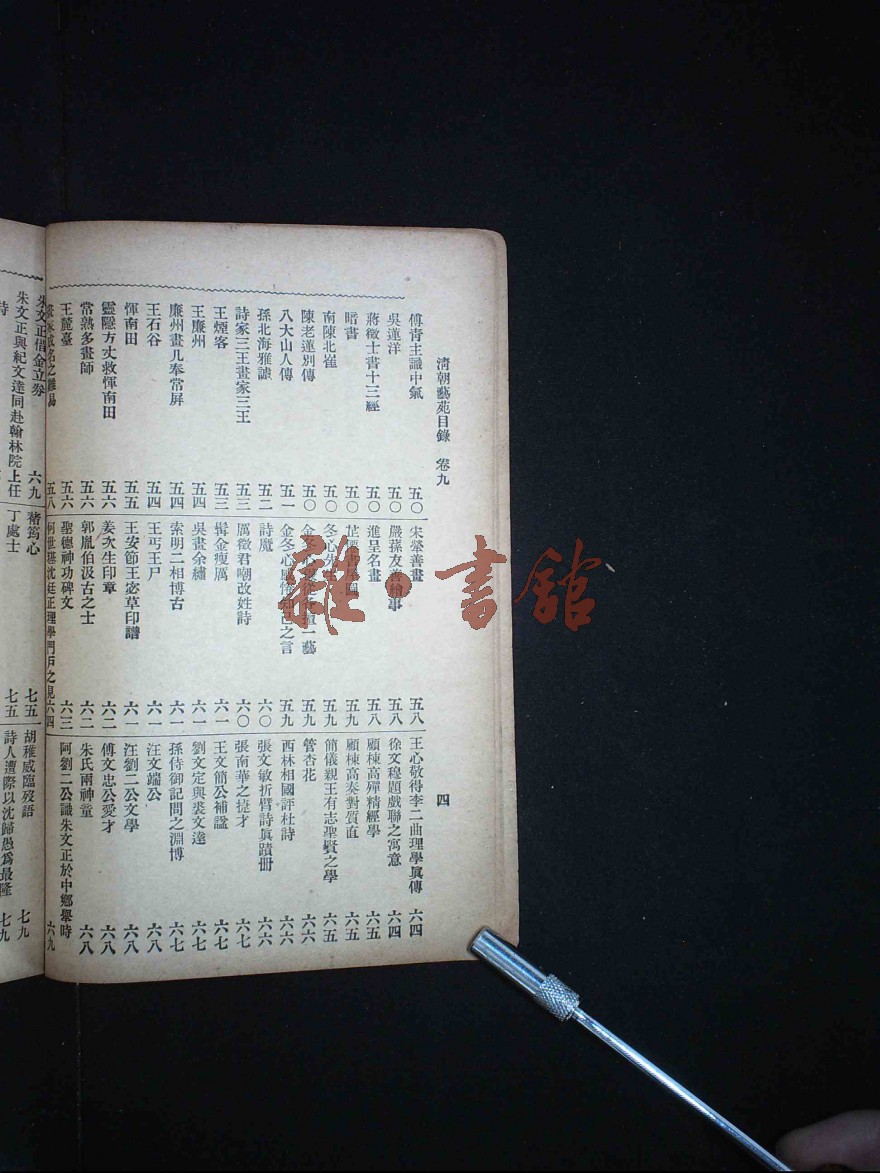 清朝藝苑目錄 卷九 四
傅青主識中氣 五〇
吳蓮洋 五〇
蔣徵士書十三經 五〇
暗書 五〇
南陳北崔 五〇
陳老蓮別傳 五〇
八大山人傳 五一
孫北海雅謔 五二
詩家三王畫家三王 五三
王煙客 五三
王廉州 五四
廉州畫几奉常屏 五四
王石谷 五四
惲南田 五五
靈隱方丈救惲南田 五六
常熟多畫師 五六
王麓臺 五六
成名之難易 五八
宋犖善畫 五八
嚴蓀友善繪事 五八
進呈名畫 五八
五九
冬心先生 五九
金冬心 一藝 五九
金冬心 知己之言 五九
詩魔 六〇
厲徵君嘲改姓詩 六〇
髯金瘦厲 六一
吳畫余繡 六一
索明二相博古 六一
王丐王尸 六一
王安節王宓草印譜 六一
姜次生印章 六二
郭胤伯汲古之士 六二
聖德神功碑文 六三
何世璂沈廷正理學門戶之見 六四
王心敬得李二曲理學眞傳 六四
徐文穆題戲聯之寓意 六四
顧棟高殫精經學 六五
顧棟高奏對質直 六五
簡儀親王有志聖賢之學 六五
管杏花 六六
西林相國評杜詩 六六
張文敏折臂詩眞蹟册 六六
張南華之捷才 六七
王文簡公補諡 六七
劉文定與裘文達 六七
孫侍御記問之淵博 六七
汪文端公 六八
汪劉二公文學 六八
傅文忠公愛才 六八
朱氏兩神童 六八
阿劉二公識朱文正於中鄉舉時 六九
朱文正借金立券 六九
朱文正與紀文達同赴翰林院上任
詩
褚筠心 七五
丁處士 七五
胡稚威臨歿語 七九
詩人遭際以沈歸愚爲最隆 七九
雜·書館